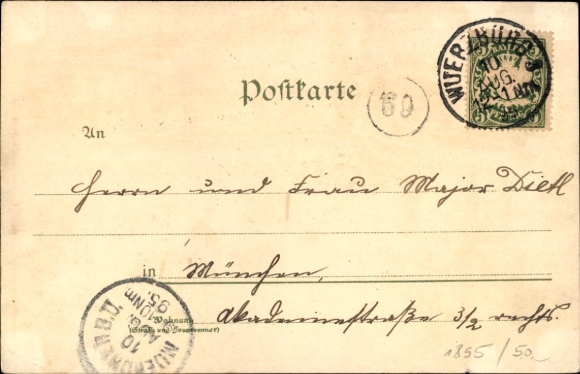 Postkarte
WUERZBURG
10
AUG.
69
An
Herrn und Frau Major Dietl
in München,
Akademiestraße 3/2 rechts.
Wohnung
(Straße und Hausnummer)
MUENCHEN B.D.
10
AUG.
10 Nm
95
1895/50.-